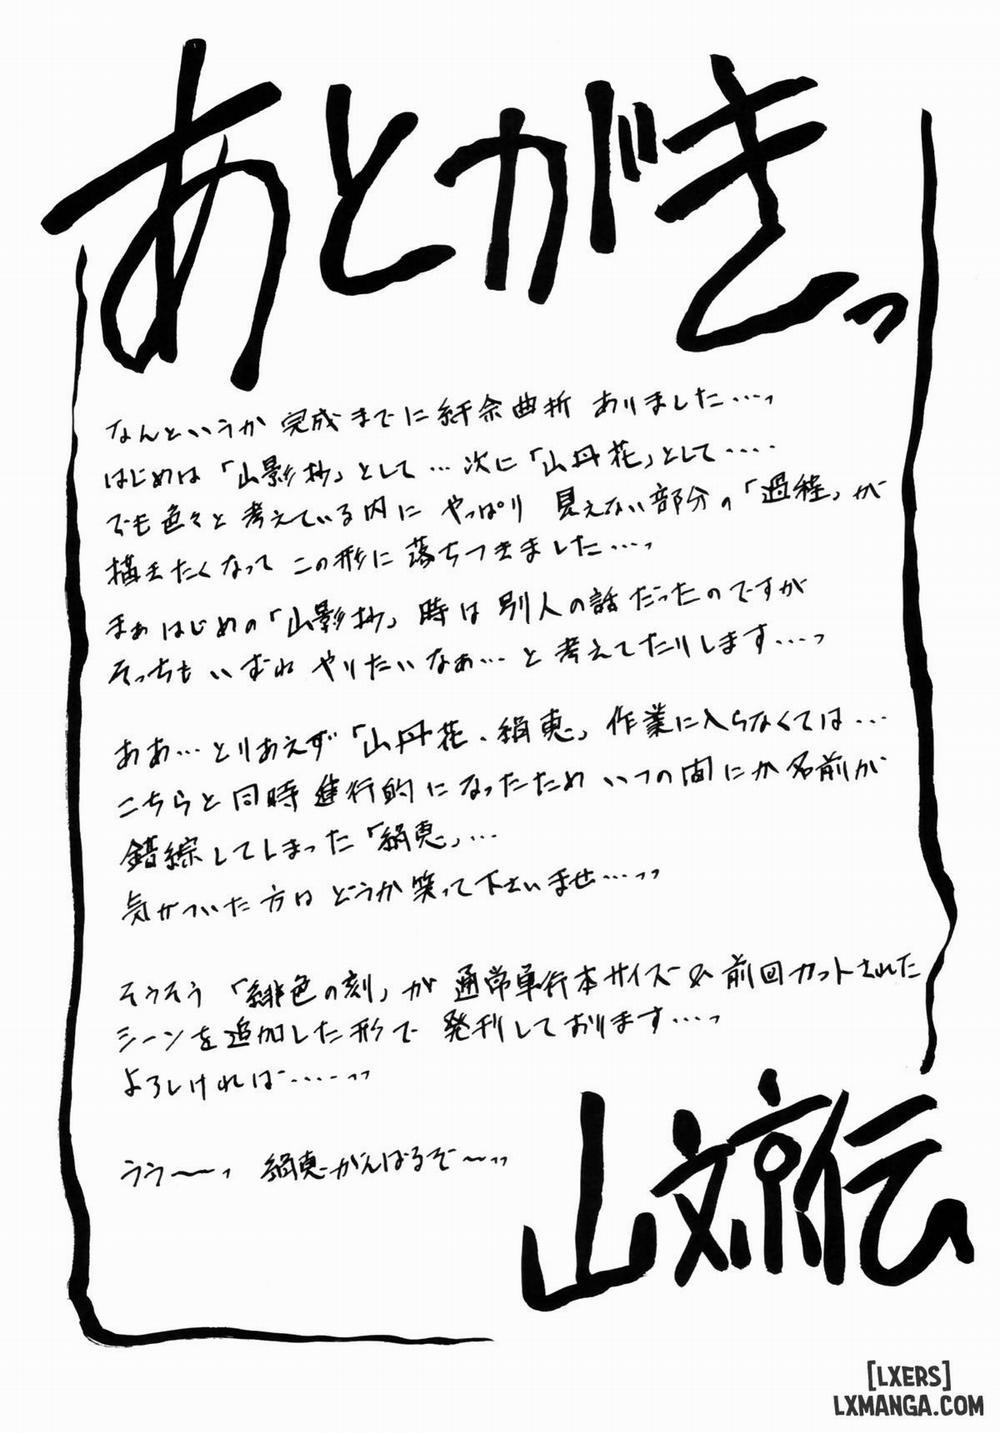 あとがきっ
なんというか 完成までに紆余曲折 ありました…っ
はじめは「山影抄」として…次に「山丹花」として‥‥
でも色々と 考えている内に やっぱり 見えない部分の「過程」が
描きたくなって この形に 落ちつきました…っ
まぁ はじめの「山影抄」時は 別人の話だったのですが
そっちも いずれ やりたいなぁ…と 考えてたりします‥‥っ
ああ…とりあえず「山丹花・絹恵」作業に入らなくては…
こちらと同時進行的になったため いつの間にか名前が
錯綜してしまった「絹恵」…
気がついた方は どうか笑って下さいませ…っっ
そうそう「緋色の刻」が 通常単行本サイズ& 前回カットされた
シーンを追加した形で 発刊しております‥‥っ
よろしければ‥‥‥っっ
うう〜〜っ 絹恵がんばるぞ〜っっ
山文京伝
[LXERS]
LXMANGA.COM